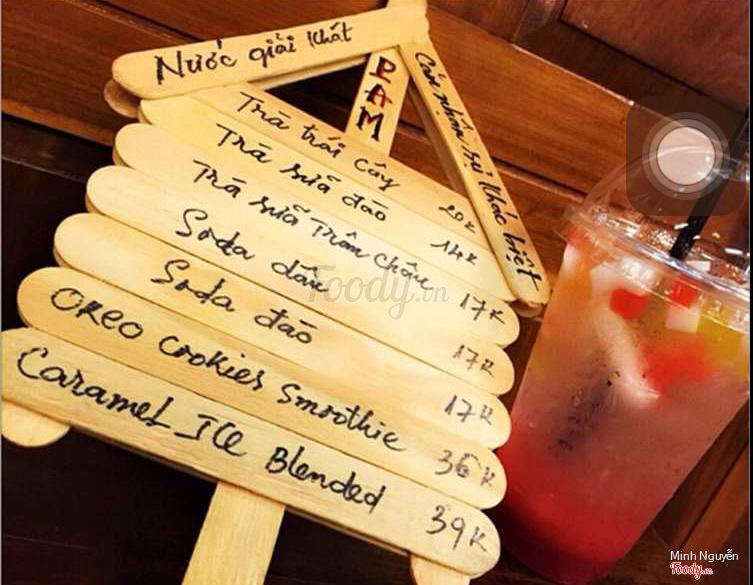 Nước giải khát
PAM
Cảm nhận sự khác biệt
Trà trái cây 20k
Trà sữa đào 14k
Trà sữa Trân Châu 17k
Soda dâu 17k
Soda đào 17k
OREO COOKIES Smoothie 36k
Caramel Ice Blended 39k
Foody.vn
Minh Nguyễn
Foody.vn